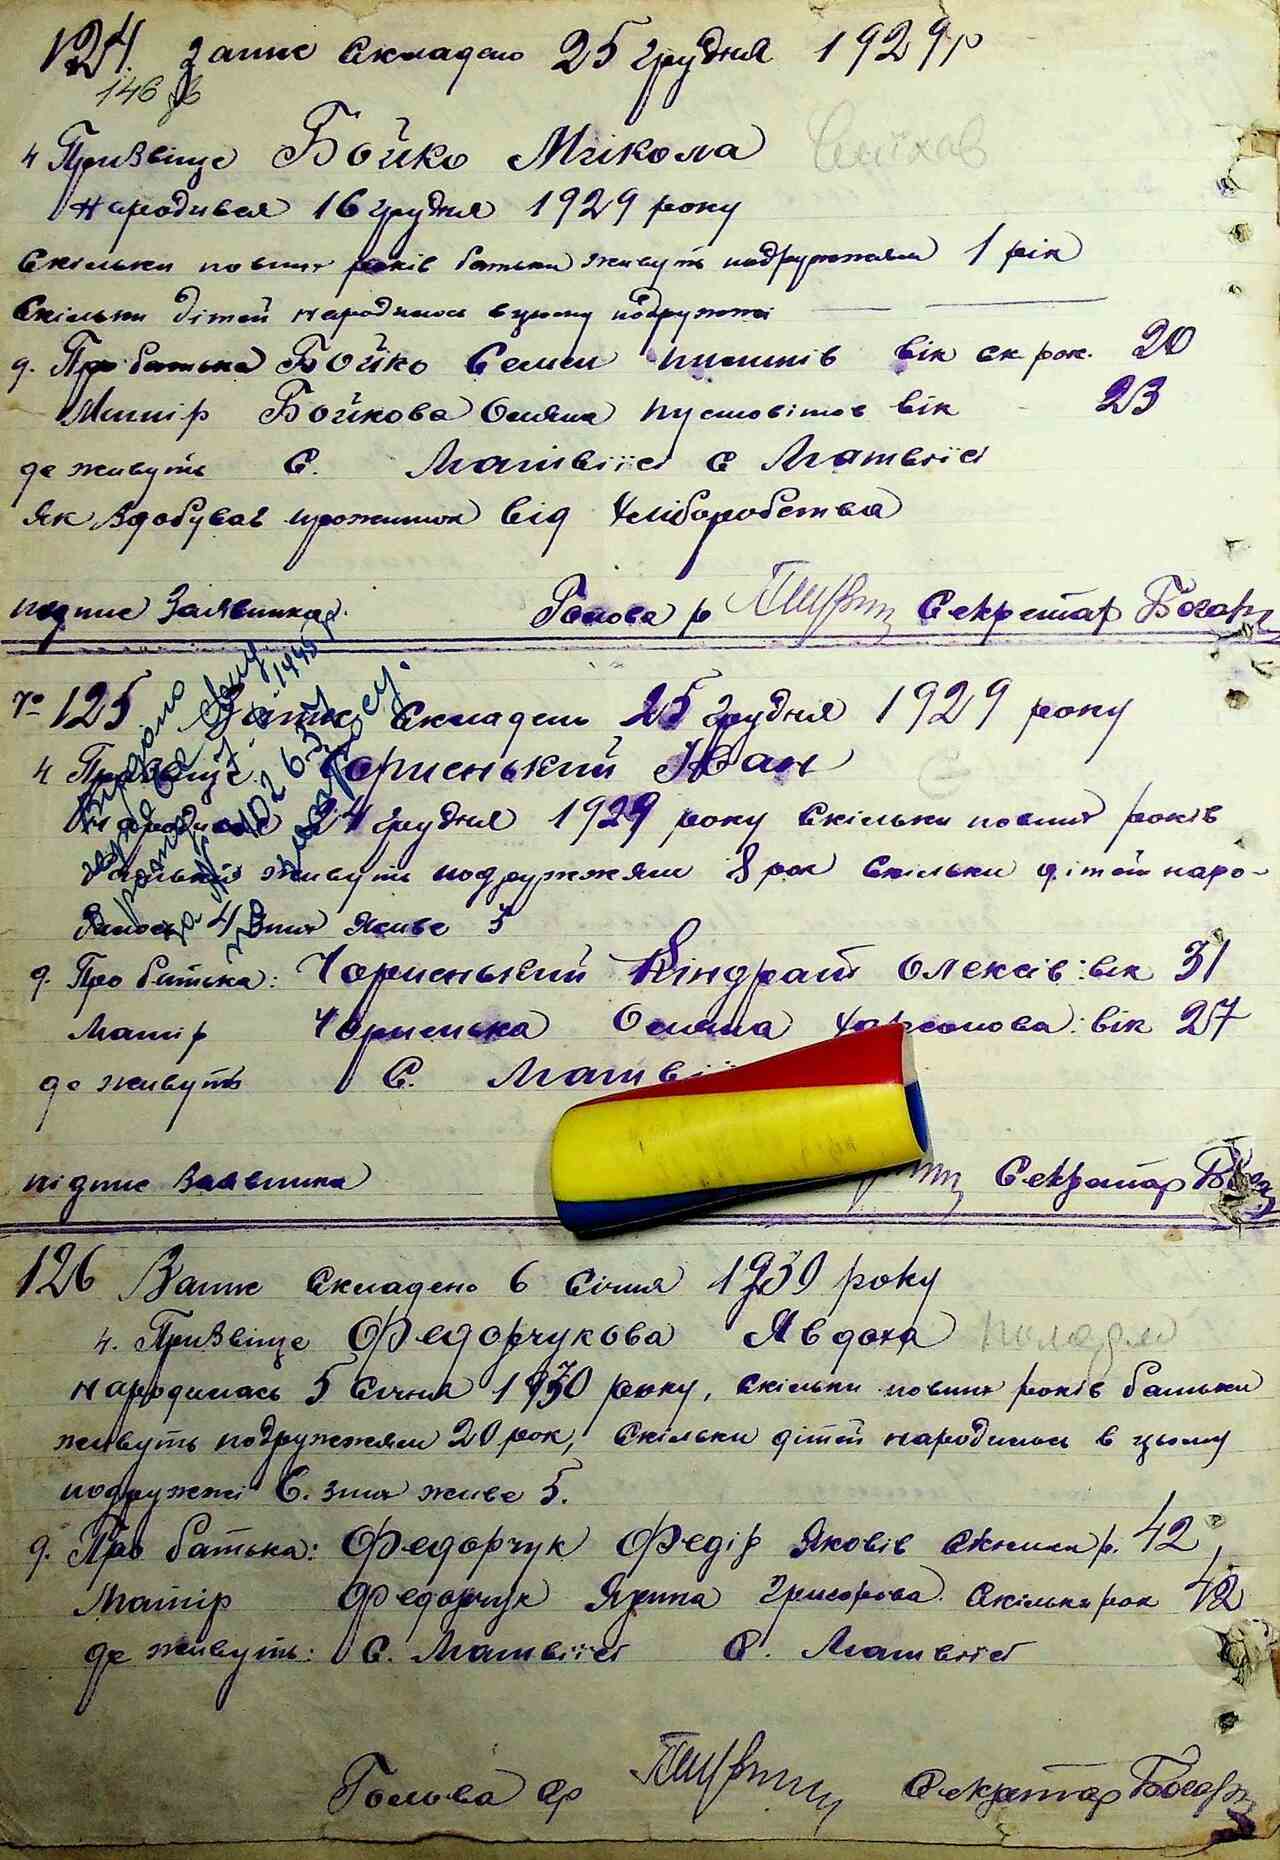 124. Запис Складено 25 грудня 1929 р
146
ч Призвіще Бойко Мікола
народився 16 грудня 1929 року
скільки повних років батьки живуть подружжям 1 рік
Скільки дітей народилось в цьому подружжі
д. Про батька Бойко Семен вік ск рок. 20
Матір Бойкова Оляна Пустовітов вік 23
де живуть С. Матвіїсі С Матвіїсі
Як здобував прожиток від хліборобства
подпис Заявника
Голова р Секретар
125 Запис Складень 25 Грудня 1929 року
ч Призвіще Чорненький Іван
народився 24 грудня 1929 року Скільки повних років
батьки живуть подружжям 8 рок Скільки дітей наро-
дилось 4 Зних живе 3
д. Про батька: Чорненький Кіндрат Олексів: вік 31
Матір Чорненька Оляна вік 27
де живуть С. Матвії
підпис Заявника
Секретар
126 Запис Складено 6 Січня 1930 року
ч. Призвіще Федорчукова Явдоха
народилась 5 Січня 1930 року, скільки повних років батьки
живуть подружжям 20 рок, Скільки дітей народилось в цьому
подружжі 6. зних живе 5.
д. Про батька: Федорчук Федір Яковів Скільки р. 42,
Матір Федорчук Ярина Григорова Скільки рок 42
де живуть: С. Матвіїсі С. Матвіїсі
Голова ср Секретар